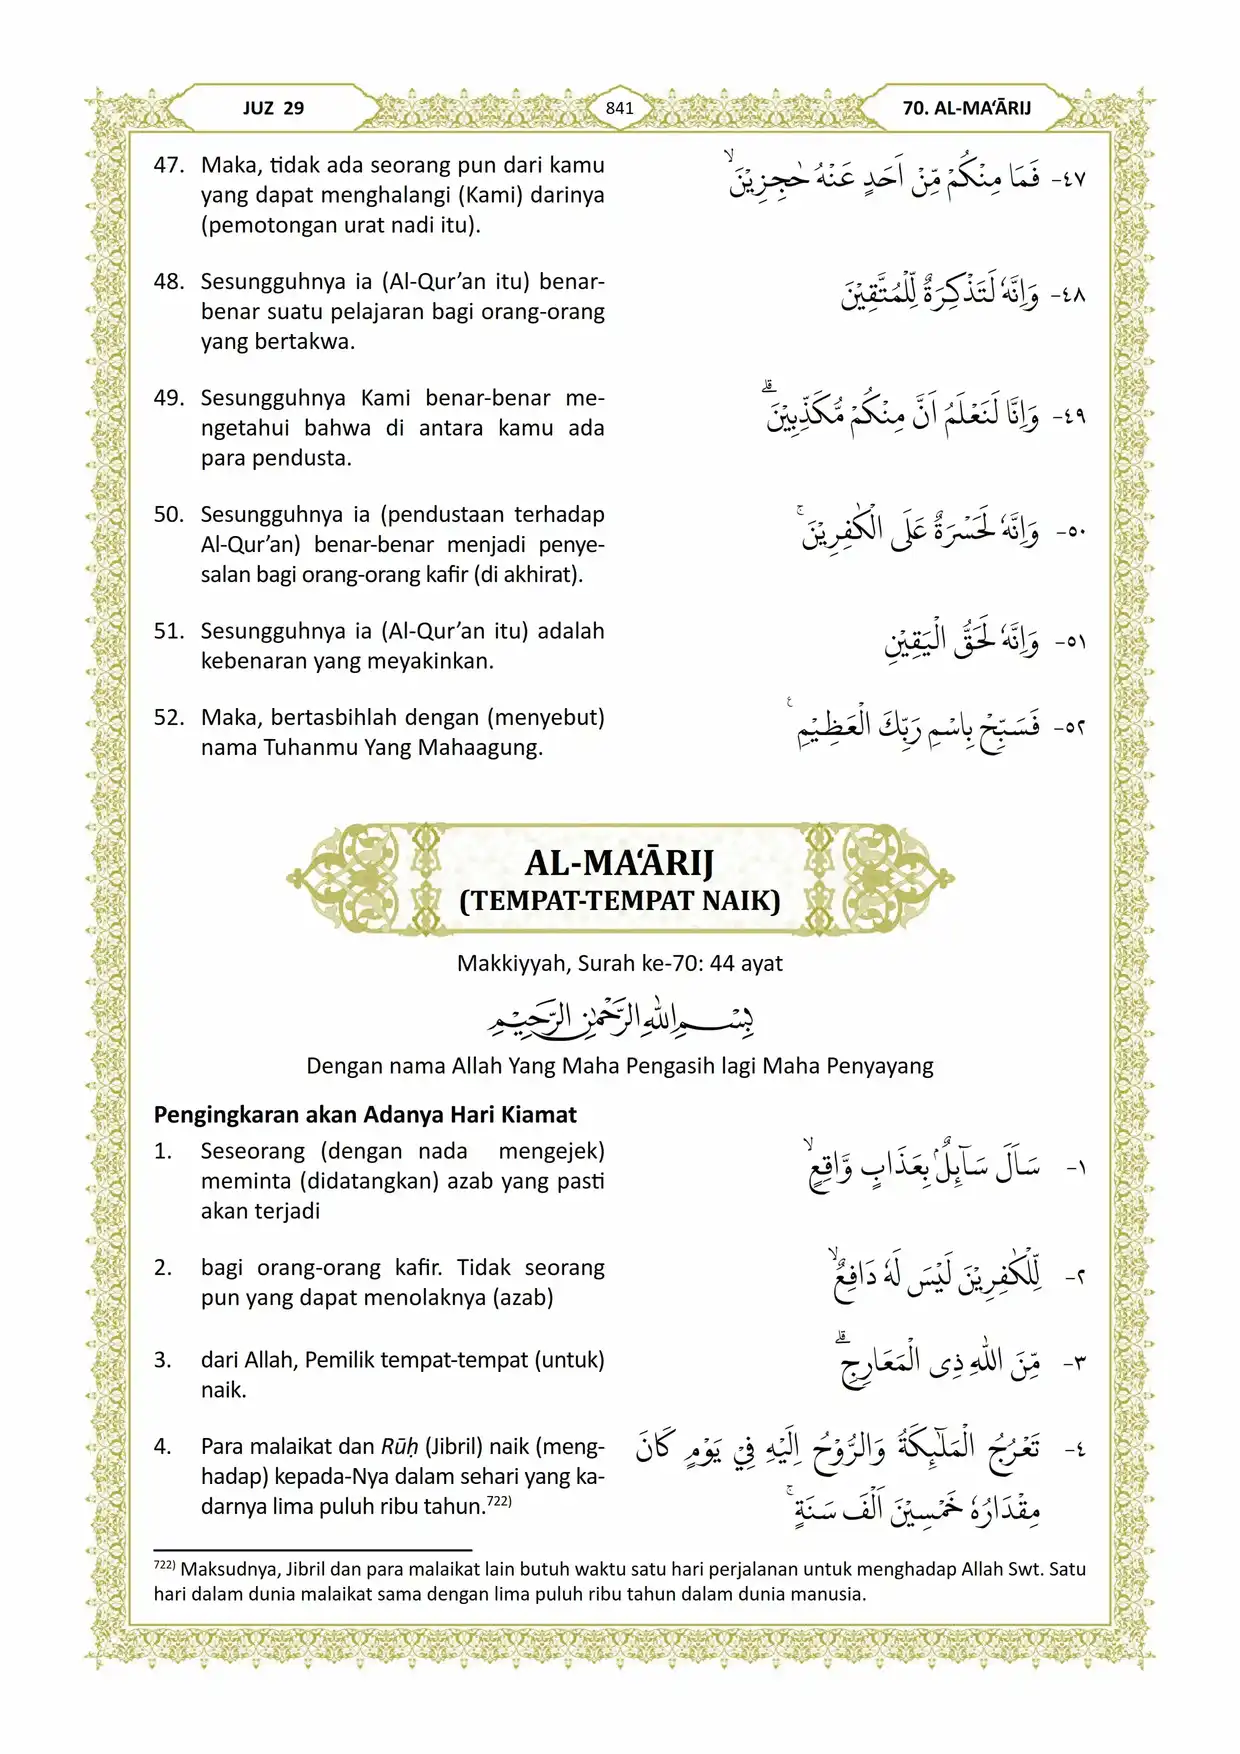 JUZ 29
841
70. AL-MA‘ĀRIJ
47. Maka, tidak ada seorang pun dari kamu
yang dapat menghalangi (Kami) darinya
(pemotongan urat nadi itu).
٤٧- فَمَا مِنْكُمْ مِّنْ اَحَدٍ عَنْهُ حٰجِزِيْنَۙ
48. Sesungguhnya ia (Al-Qur’an itu) benar-
benar suatu pelajaran bagi orang-orang
yang bertakwa.
٤٨- وَاِنَّهٗ لَتَذْكِرَةٌ لِّلْمُتَّقِيْنَ
49. Sesungguhnya Kami benar-benar me-
ngetahui bahwa di antara kamu ada
para pendusta.
٤٩- وَاِنَّا لَنَعْلَمُ اَنَّ مِنْكُمْ مُّكَذِّبِيْنَۗ
50. Sesungguhnya ia (pendustaan terhadap
Al-Qur’an) benar-benar menjadi penye-
salan bagi orang-orang kafir (di akhirat).
٥٠- وَاِنَّهٗ لَحَسْرَةٌ عَلَى الْكٰفِرِيْنَۚ
51. Sesungguhnya ia (Al-Qur’an itu) adalah
kebenaran yang meyakinkan.
٥١- وَاِنَّهٗ لَحَقُّ الْيَقِيْنِ
52. Maka, bertasbihlah dengan (menyebut)
nama Tuhanmu Yang Mahaagung.
٥٢- فَسَبِّحْ بِاسْمِ رَبِّكَ الْعَظِيْمِ ࣖ
AL-MA‘ĀRIJ
(TEMPAT-TEMPAT NAIK)
Makkiyyah, Surah ke-70: 44 ayat
بِسْمِ اللّٰهِ الرَّحْمٰنِ الرَّحِيْمِ
Dengan nama Allah Yang Maha Pengasih lagi Maha Penyayang
Pengingkaran akan Adanya Hari Kiamat
1. Seseorang (dengan nada mengejek)
meminta (didatangkan) azab yang pasti
akan terjadi
١- سَاَلَ سَاۤىِٕلٌۢ بِعَذَابٍ وَّاقِعٍۙ
2. bagi orang-orang kafir. Tidak seorang
pun yang dapat menolaknya (azab)
٢- لِّلْكٰفِرِيْنَ لَيْسَ لَهٗ دَافِعٌۙ
3. dari Allah, Pemilik tempat-tempat (untuk)
naik.
٣- مِّنَ اللّٰهِ ذِى الْمَعَارِجِۗ
4. Para malaikat dan Rūḥ (Jibril) naik (meng-
hadap) kepada-Nya dalam sehari yang ka-
darnya lima puluh ribu tahun.722)
٤- تَعْرُجُ الْمَلٰۤىِٕكَةُ وَالرُّوْحُ اِلَيْهِ فِيْ يَوْمٍ كَانَ
مِقْدَارُهٗ خَمْسِيْنَ اَلْفَ سَنَةٍۚ
722) Maksudnya, Jibril dan para malaikat lain butuh waktu satu hari perjalanan untuk menghadap Allah Swt. Satu
hari dalam dunia malaikat sama dengan lima puluh ribu tahun dalam dunia manusia.